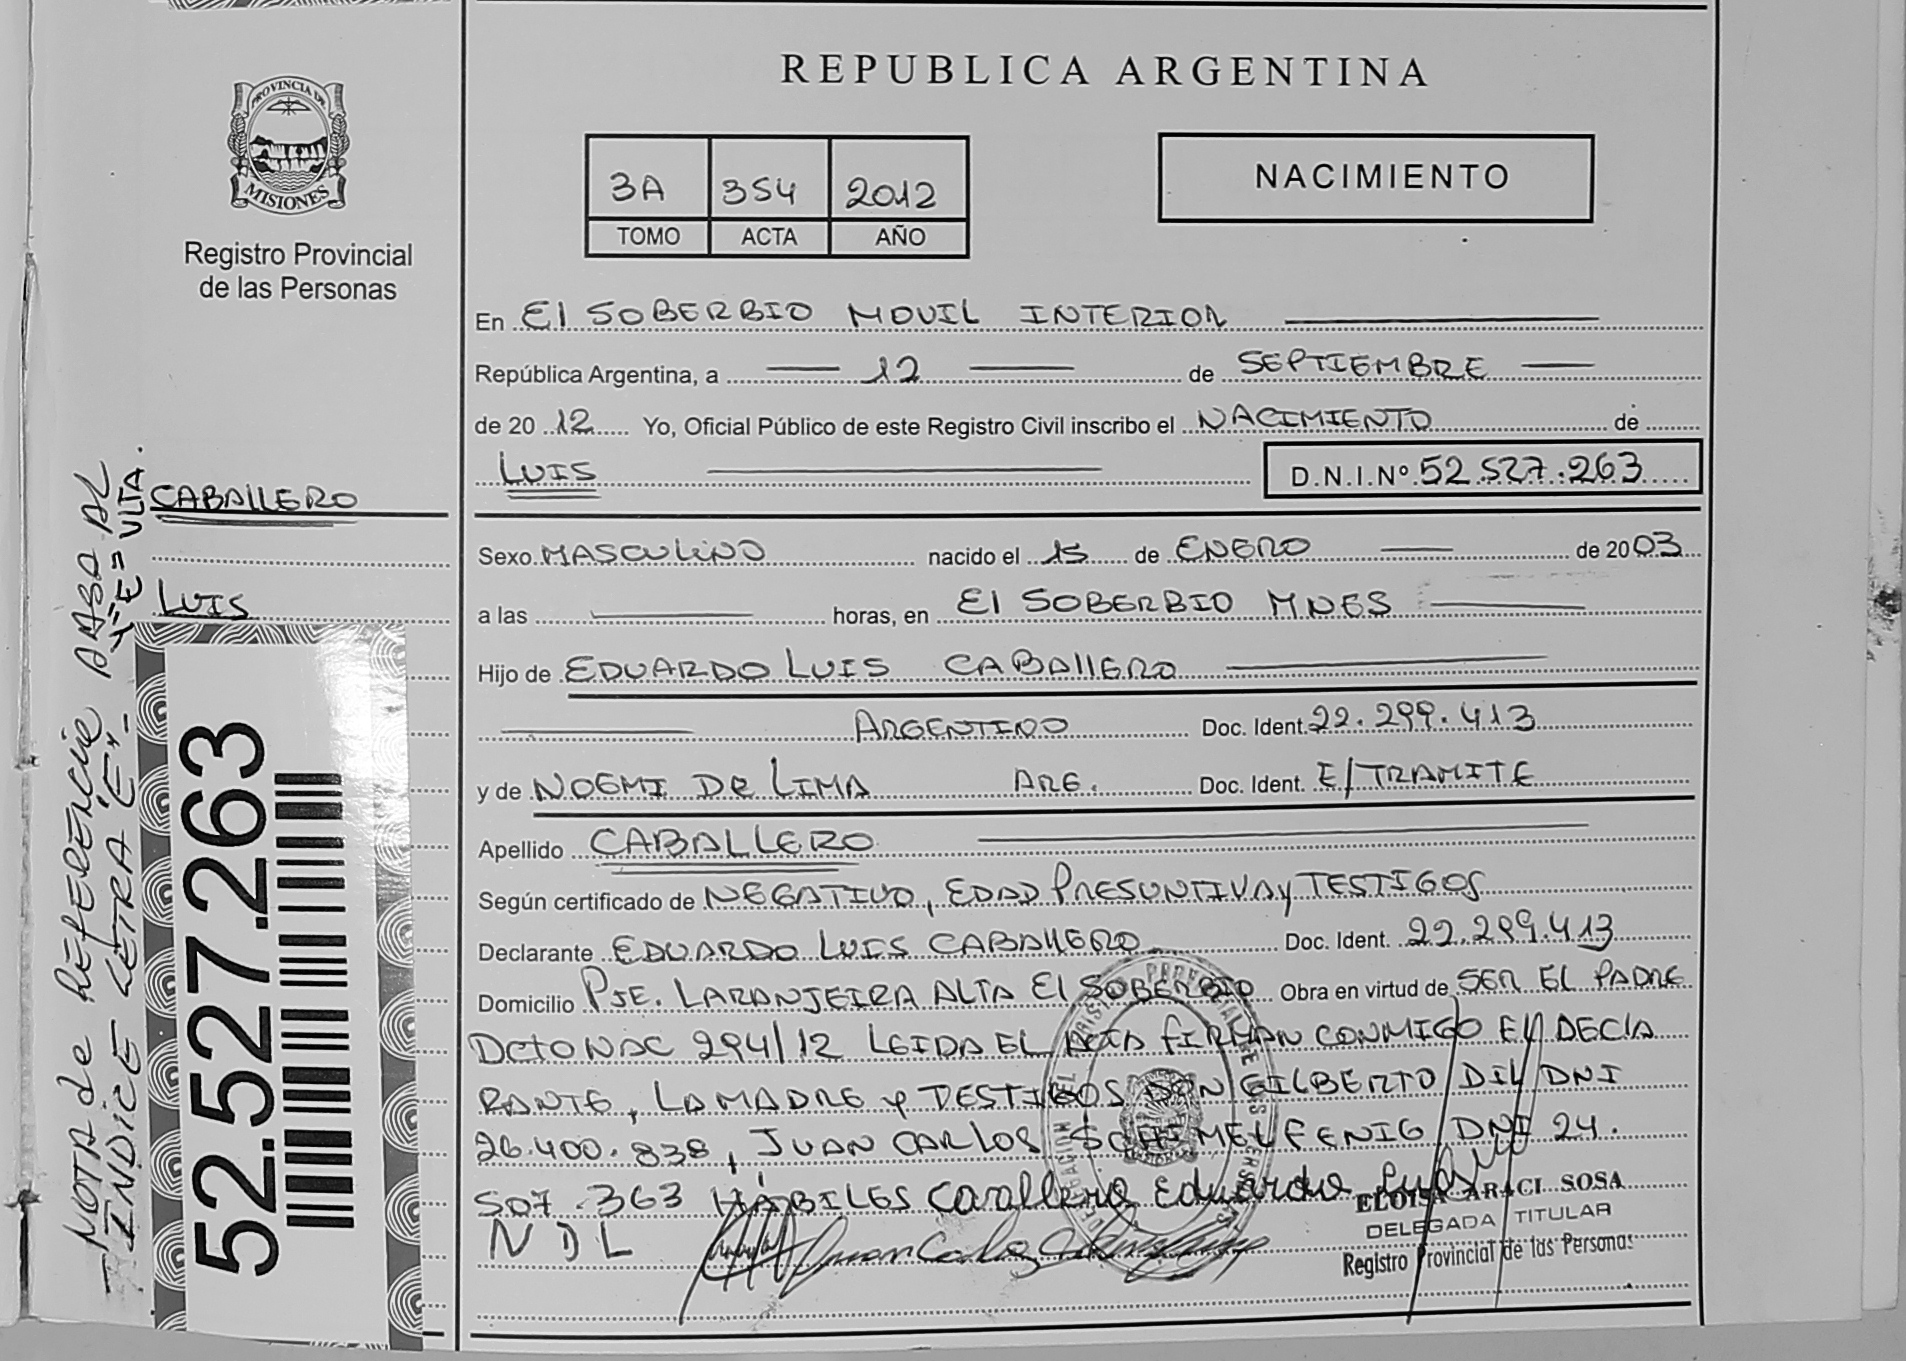 PROVINCIA DE
MISIONES
Registro Provincial
de las Personas
REPUBLICA ARGENTINA
3A 354 2012
TOMO ACTA AÑO
NACIMIENTO
En El SOBERBIO MOVIL INTERIOR
República Argentina, a 12 de SEPTIEMBRE
de 20 12 Yo, Oficial Público de este Registro Civil inscribo el NACIMIENTO de
LUIS D.N.I.Nº 52.527.263
CABALLERO
LUIS
Sexo MASCULINO nacido el 15 de ENERO de 2003
a las horas, en El SOBERBIO MNES
Hijo de EDUARDO LUIS CABALLERO
ARGENTINO Doc. Ident. 22.299.413
y de NOEMI DE LIMA ARG. Doc. Ident. E/TRAMITE
Apellido CABALLERO
Según certificado de NEGATIVO, EDAD PRESUNTIVA y TESTIGOS
Declarante EDUARDO LUIS CABALLERO Doc. Ident. 22.299.413
Domicilio PJE. LARANJEIRA ALTA El SOBERBIO Obra en virtud de SER EL PADRE
DCTO NAC 294/12 LEIDA EL ACTA FIRMAN CONMIGO EL DECLA
RANTE, LA MADRE y TESTIGOS DON GILBERTO DIL DNI
26.400.838, JUAN CARLOS SCHIMELFENIG DNI 24.
507.363 HÁBILES Cavallero Eduardo Luis
NDL Juan Carlos
ELOISA ARACI SOSA
DELEGADA TITULAR
Registro Provincial de las Personas
52.527.263
NOTA de REFERENCIA PASA AL
INDICE LETRA "E"-
VLTA.